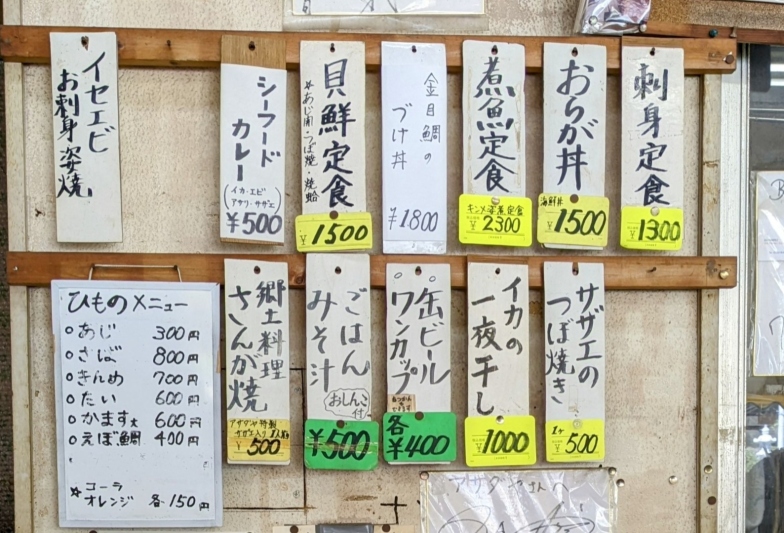 刺身定食
¥1300
おらが丼
海鮮丼
¥1500
煮魚定食
キンメ姿煮定食
¥2300
金目鯛の
づけ丼
¥1800
貝鮮定食
¥1500
シーフード
カレー
(イカ・エビ
アサリ・サザエ)
¥500
イセエビ
お刺身 姿焼
サザエの
つぼ焼き
1ヶ
¥500
イカの
一夜干し
¥1000
○缶ビール
○ワンカップ
各
¥400
ごはん
みそ汁
おしんこ
付
¥500
郷土料理
さんが焼
¥500
ひものメニュー
○あじ 300円
○さば 800円
○きんめ 700円
○たい 600円
○かます大 600円
○えぼ鯛 400円
☆コーラ
オレンジ 各150円
アサダヤさんへ